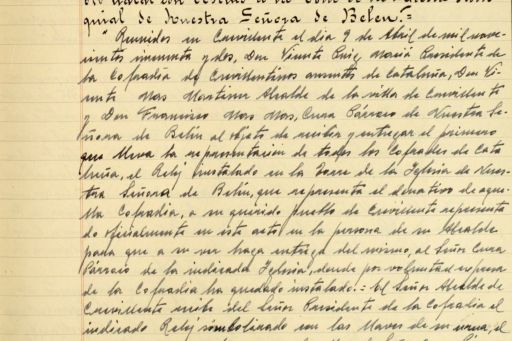 quial de Nuestra Señora de Belen.=
"Reunidos en Crevillente el dia 9 de Abril de mil nove-
cientos cincuenta y dos, Don Vicente Puig Maciá Presidente de
la Cofradia de Crevillentinos ausentes de Cataluña, Don Vi-
cente Mas Martinez Alcalde de la villa de Crevillente
y Don Francisco Mas Mas, Cura Párroco de Nuestra Se-
ñora de Belén al objeto de recibir y entregar el primero
que lleva la representación de todos los Cofrades de Cata-
luña, el Reloj instalado en la Torre de la Iglesia de Nues-
tra Señora de Belén, que representa el donativo de aque-
lla Cofradia, a su querido pueblo de Crevillente representa
do oficialmente en este acto en la persona de su Alcalde
para que a su vez haga entrega del mismo, al Señor Cura
Párroco de la indicada Iglesia, donde por voluntad expresa
de la Cofradia ha quedado instalado.= El Señor Alcalde de
Crevillente recibe del Señor Presidente de la Cofradia el
indicado Reloj simbolizado en las llaves de su el